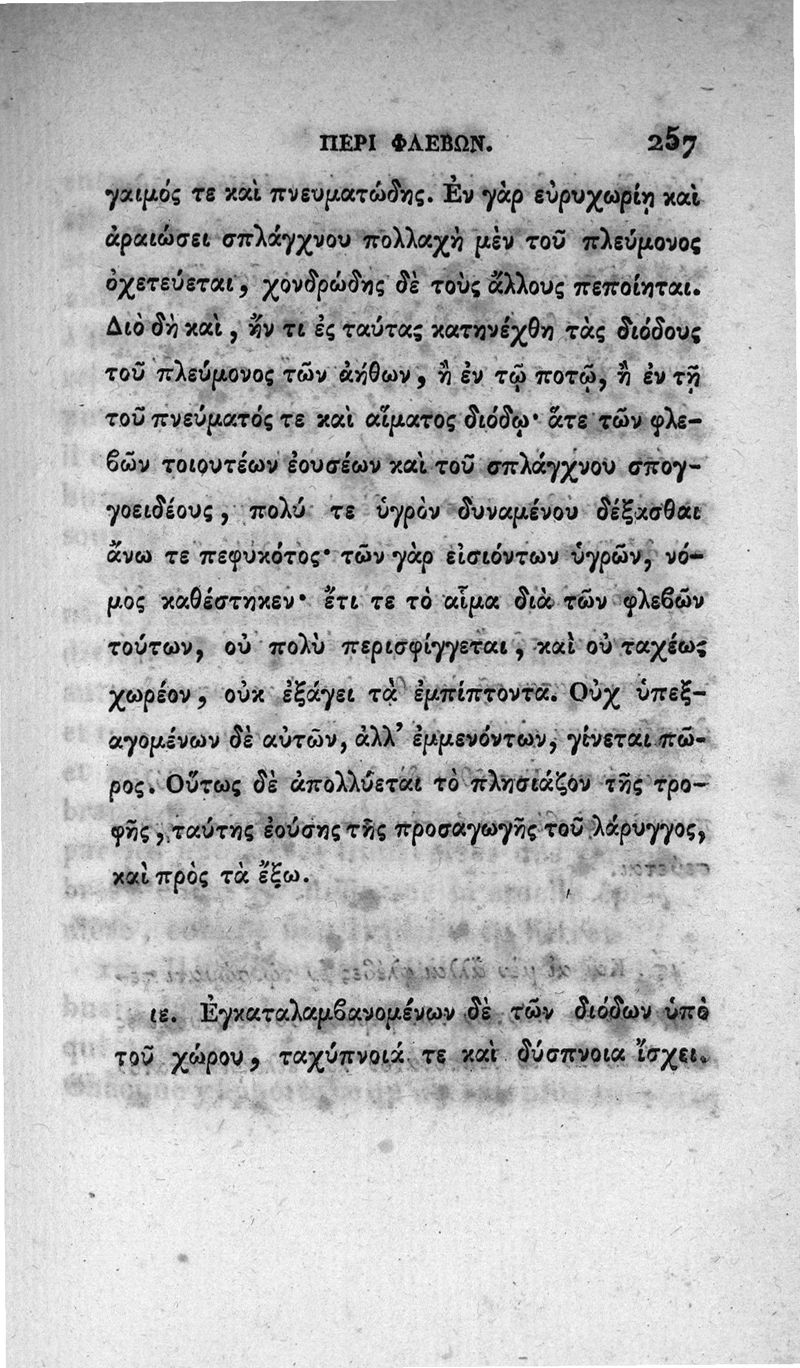 ΠΕΡΙ ΦΛΕΒΩΝ. 257
γαιμός τε καὶ πνευματώδης. Ἐν γὰρ εὐρυχωρίῃ καὶ
ἀραιώσει σπλάγχνου πολλαχὴ μὲν τοῦ πλεύμονος
ὀχετεύεται, χονδρώδης δὲ τοὺς ἄλλους πεποίηται.
Διὸ δὴ καὶ, ἤν τι ἐς ταύτας κατηνέχθη τὰς διόδους
τοῦ πλεύμονος τῶν ἀήθων, ἢ ἐν τῷ ποτῷ, ἢ ἐν τῇ
τοῦ πνεύματός τε καὶ αἵματος διόδῳ· ἅτε τῶν φλε-
βῶν τοιουτέων ἐουσέων καὶ τοῦ σπλάγχνου σπογ-
γοειδέους, πολύ τε ὑγρὸν δυναμένου δέξασθαι
ἄνω τε πεφυκότος· τῶν γὰρ εἰσιόντων ὑγρῶν, νό-
μος καθέστηκεν· ἔτι τε τὸ αἷμα διὰ τῶν φλεβῶν
τούτων, οὐ πολὺ περισφίγγεται, καὶ οὐ ταχέως
χωρέον, οὐκ ἐξάγει τὰ ἐμπίπτοντα. Οὐχ ὑπεξ-
αγομένων δὲ αὐτῶν, ἀλλ’ ἐμμενόντων, γίνεται πῶ-
ρος. Οὕτως δὲ ἀπολλύεται τὸ πλησιάζον τῆς τρο-
φῆς, ταύτης ἐούσης τῆς προσαγωγῆς τοῦ λάρυγγος,
καὶ πρὸς τὰ ἔξω.
ιε. Ἐγκαταλαμβανομένων δὲ τῶν διόδων ὑπὸ
τοῦ χώρου, ταχύπνοιά τε καὶ δύσπνοια ἴσχει.